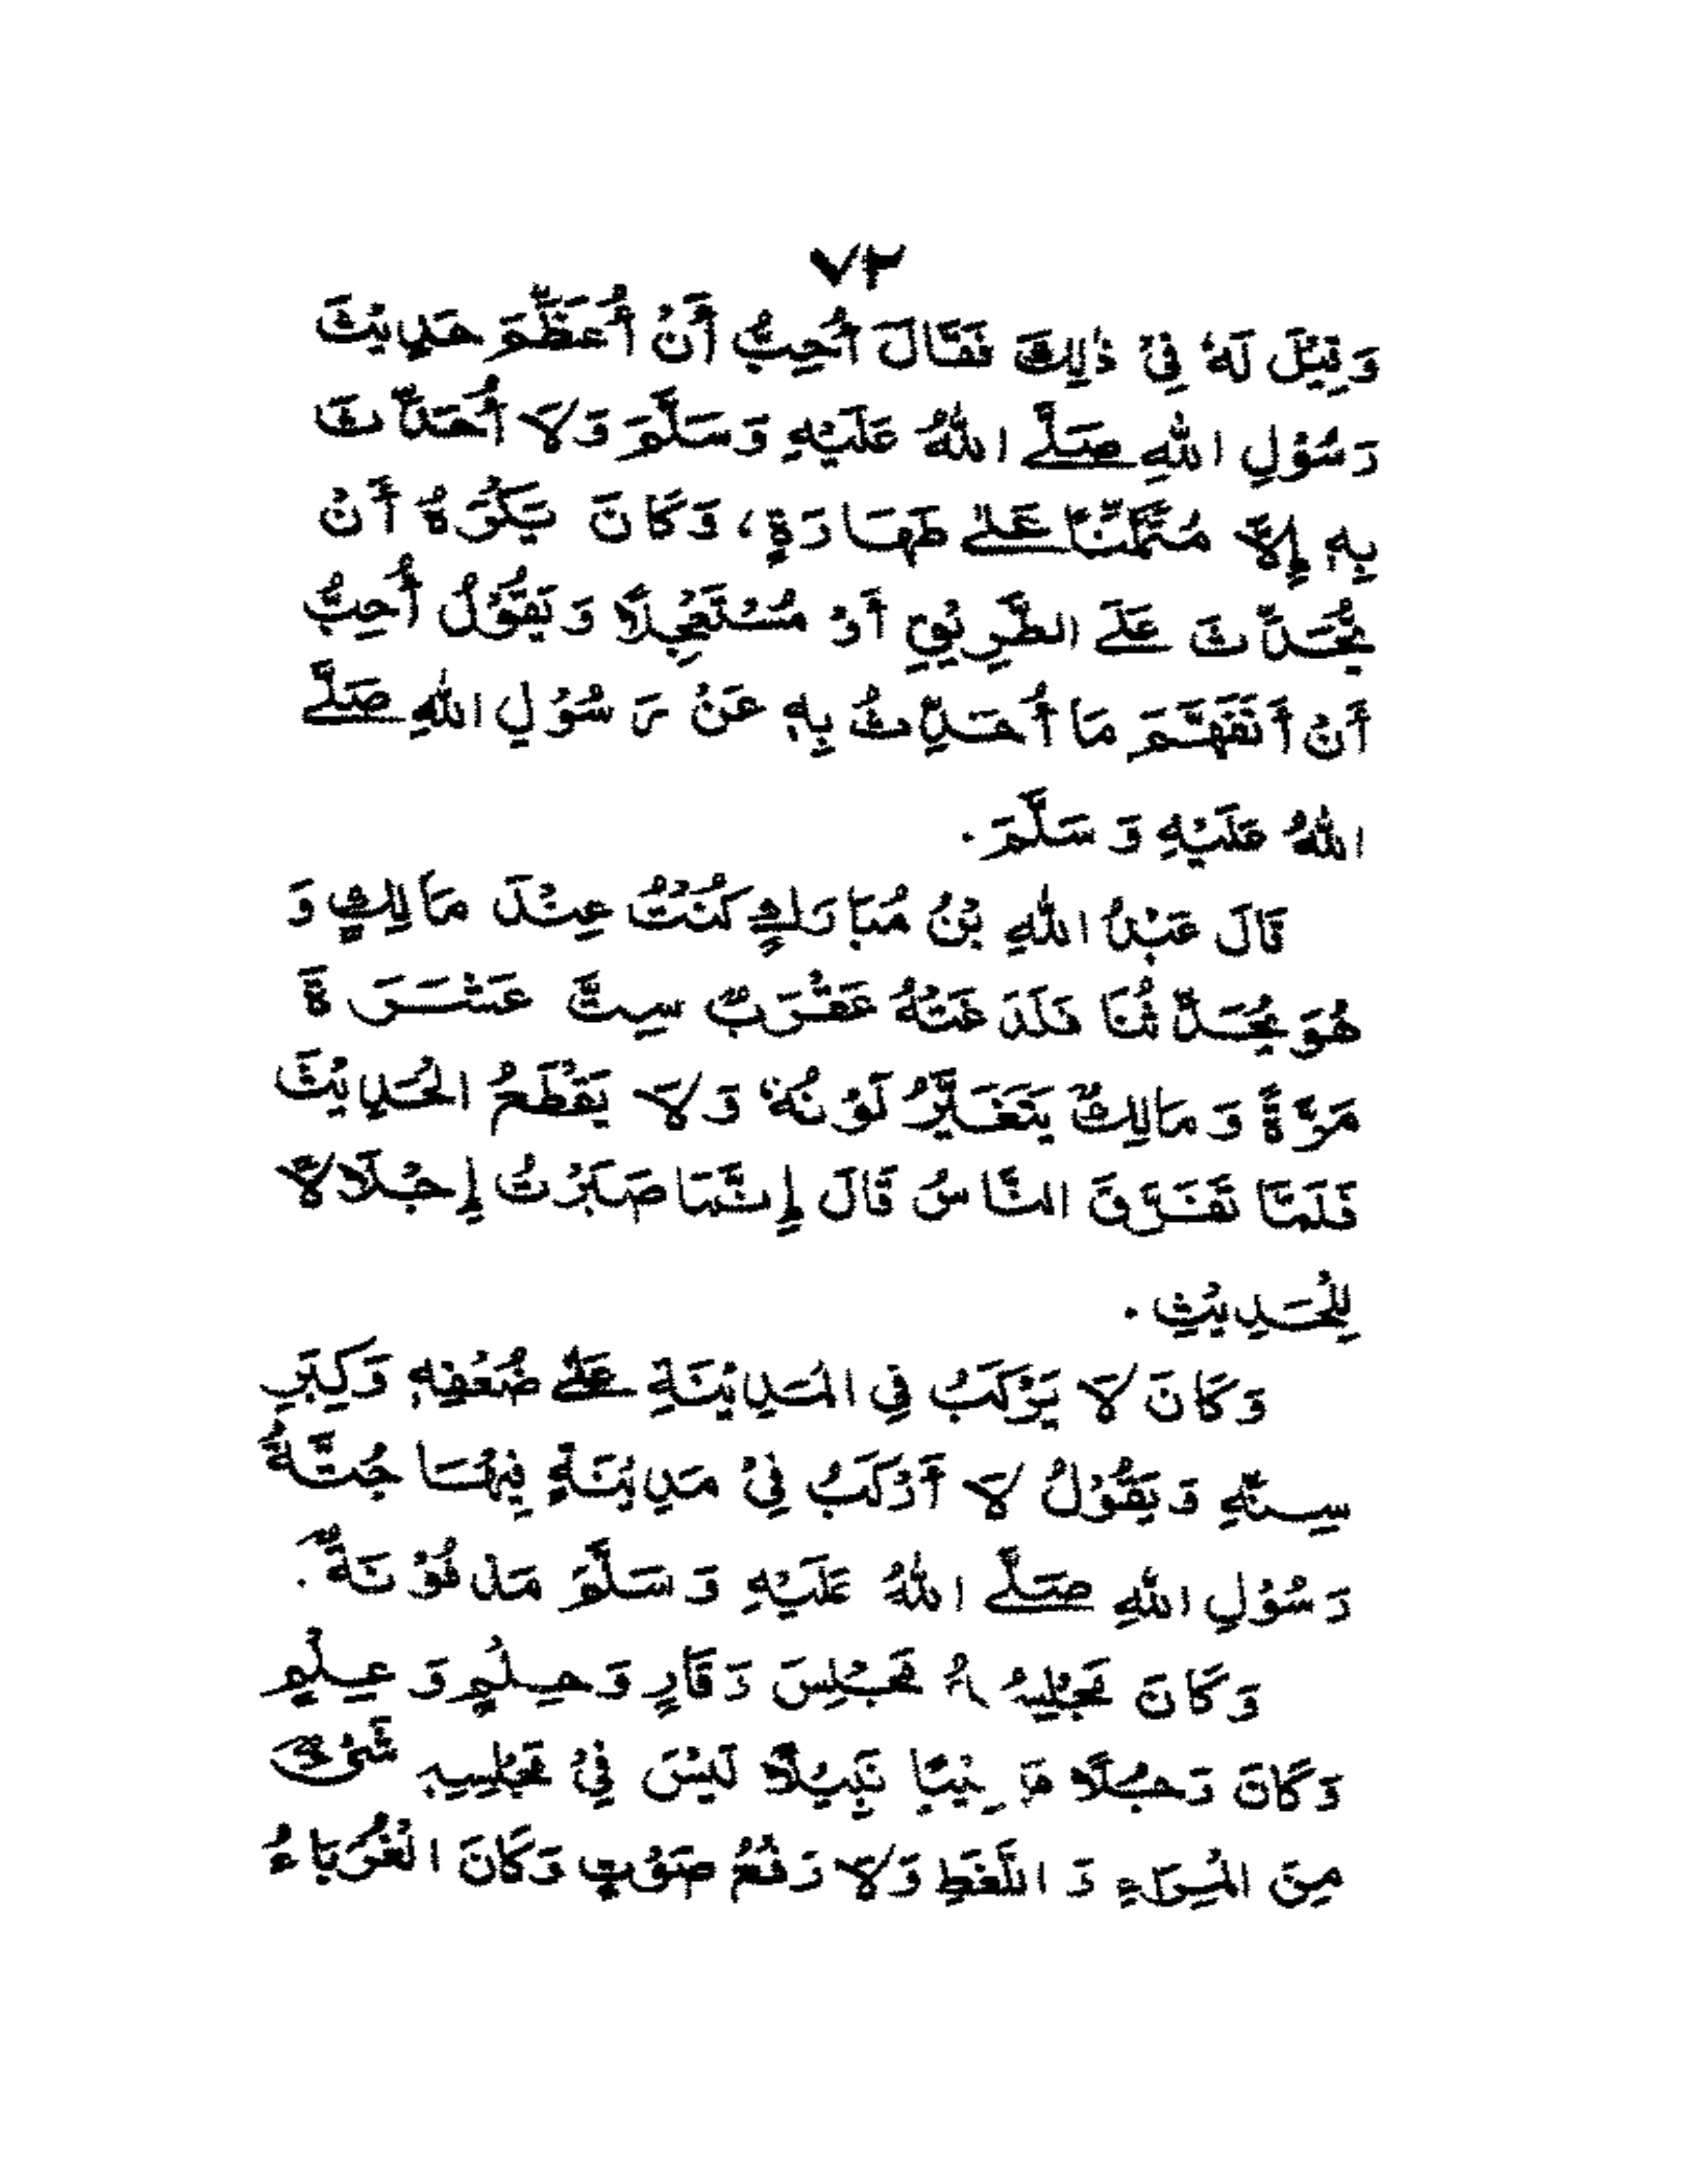 ٧٢
وَقِيْلَ لَهٗ فِيْ ذٰلِكَ فَقَالَ أُحِبُّ أَنْ أُعَظِّمَ حَدِيْثَ
رَسُوْلِ اللهِ صَلَّى اللهُ عَلَيْهِ وَسَلَّمَ وَلَا أُحَدِّثَ
بِهٖ إِلَّا مُتَمَكِّنًا عَلٰى طَهَارَةٍ، وَكَانَ يَكْرَهُ أَنْ
يُّحَدِّثَ عَلَى الطَّرِيْقِ أَوْ مُسْتَعْجِلًا وَيَقُوْلُ أُحِبُّ
أَنْ أَتَفَهَّمَ مَا أُحَدِّثُ بِهٖ عَنْ رَسُوْلِ اللهِ صَلَّى
اللهُ عَلَيْهِ وَسَلَّمَ.
قَالَ عَبْدُ اللهِ بْنُ مُبَارَكٍ كُنْتُ عِنْدَ مَالِكٍ وَ
هُوَ يُحَدِّثُنَا فَلَدَغَتْهُ عَقْرَبٌ سِتَّ عَشَرَةَ
مَرَّةً وَمَالِكٌ يَتَغَيَّرُ لَوْنُهٗ وَلَا يَقْطَعُ الْحَدِيْثَ
فَلَمَّا تَفَرَّقَ النَّاسُ قَالَ إِنَّمَا صَبَرْتُ إِجْلَالًا
لِلْحَدِيْثِ.
وَكَانَ لَا يَرْكَبُ فِي الْمَدِيْنَةِ عَلٰى ضُعْفِهٖ وَكِبَرِ
سِنِّهٖ وَيَقُوْلُ لَا أَرْكَبُ فِيْ مَدِيْنَةٍ فِيْهَا جُثَّةُ
رَسُوْلِ اللهِ صَلَّى اللهُ عَلَيْهِ وَسَلَّمَ مَدْفُوْنَةٌ.
وَكَانَ مَجْلِسُهٗ مَجْلِسَ وَقَارٍ وَحِلْمٍ وَعِلْمٍ
وَكَانَ رَجُلًا مَهِيْبًا نَبِيْلًا لَيْسَ فِيْ مَجْلِسِهٖ شَيْءٌ
مِنَ الْمِرَاءِ وَاللَّغَطِ وَلَا رَفْعُ صَوْتٍ وَكَانَ الْغُرَبَاءُ